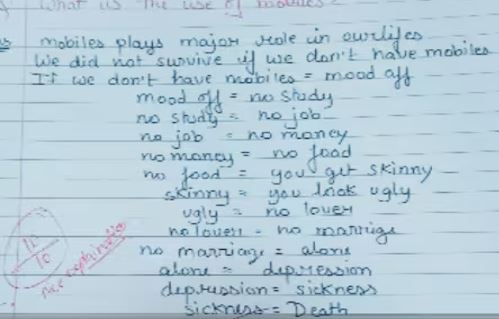 What is the use of mobiles?
mobiles plays major role in ourlifes
We did not survive if we don't have mobiles
If we don't have mobiles = mood off
mood off = no study
no study = no job
no job = no money
no money = no food
no food = you get skinny
skinny = you look ugly
ugly = no lover
no lover = no marrige
no marriage = alone
alone = depression
depression = sickness
sickness = Death
10
10
explanation